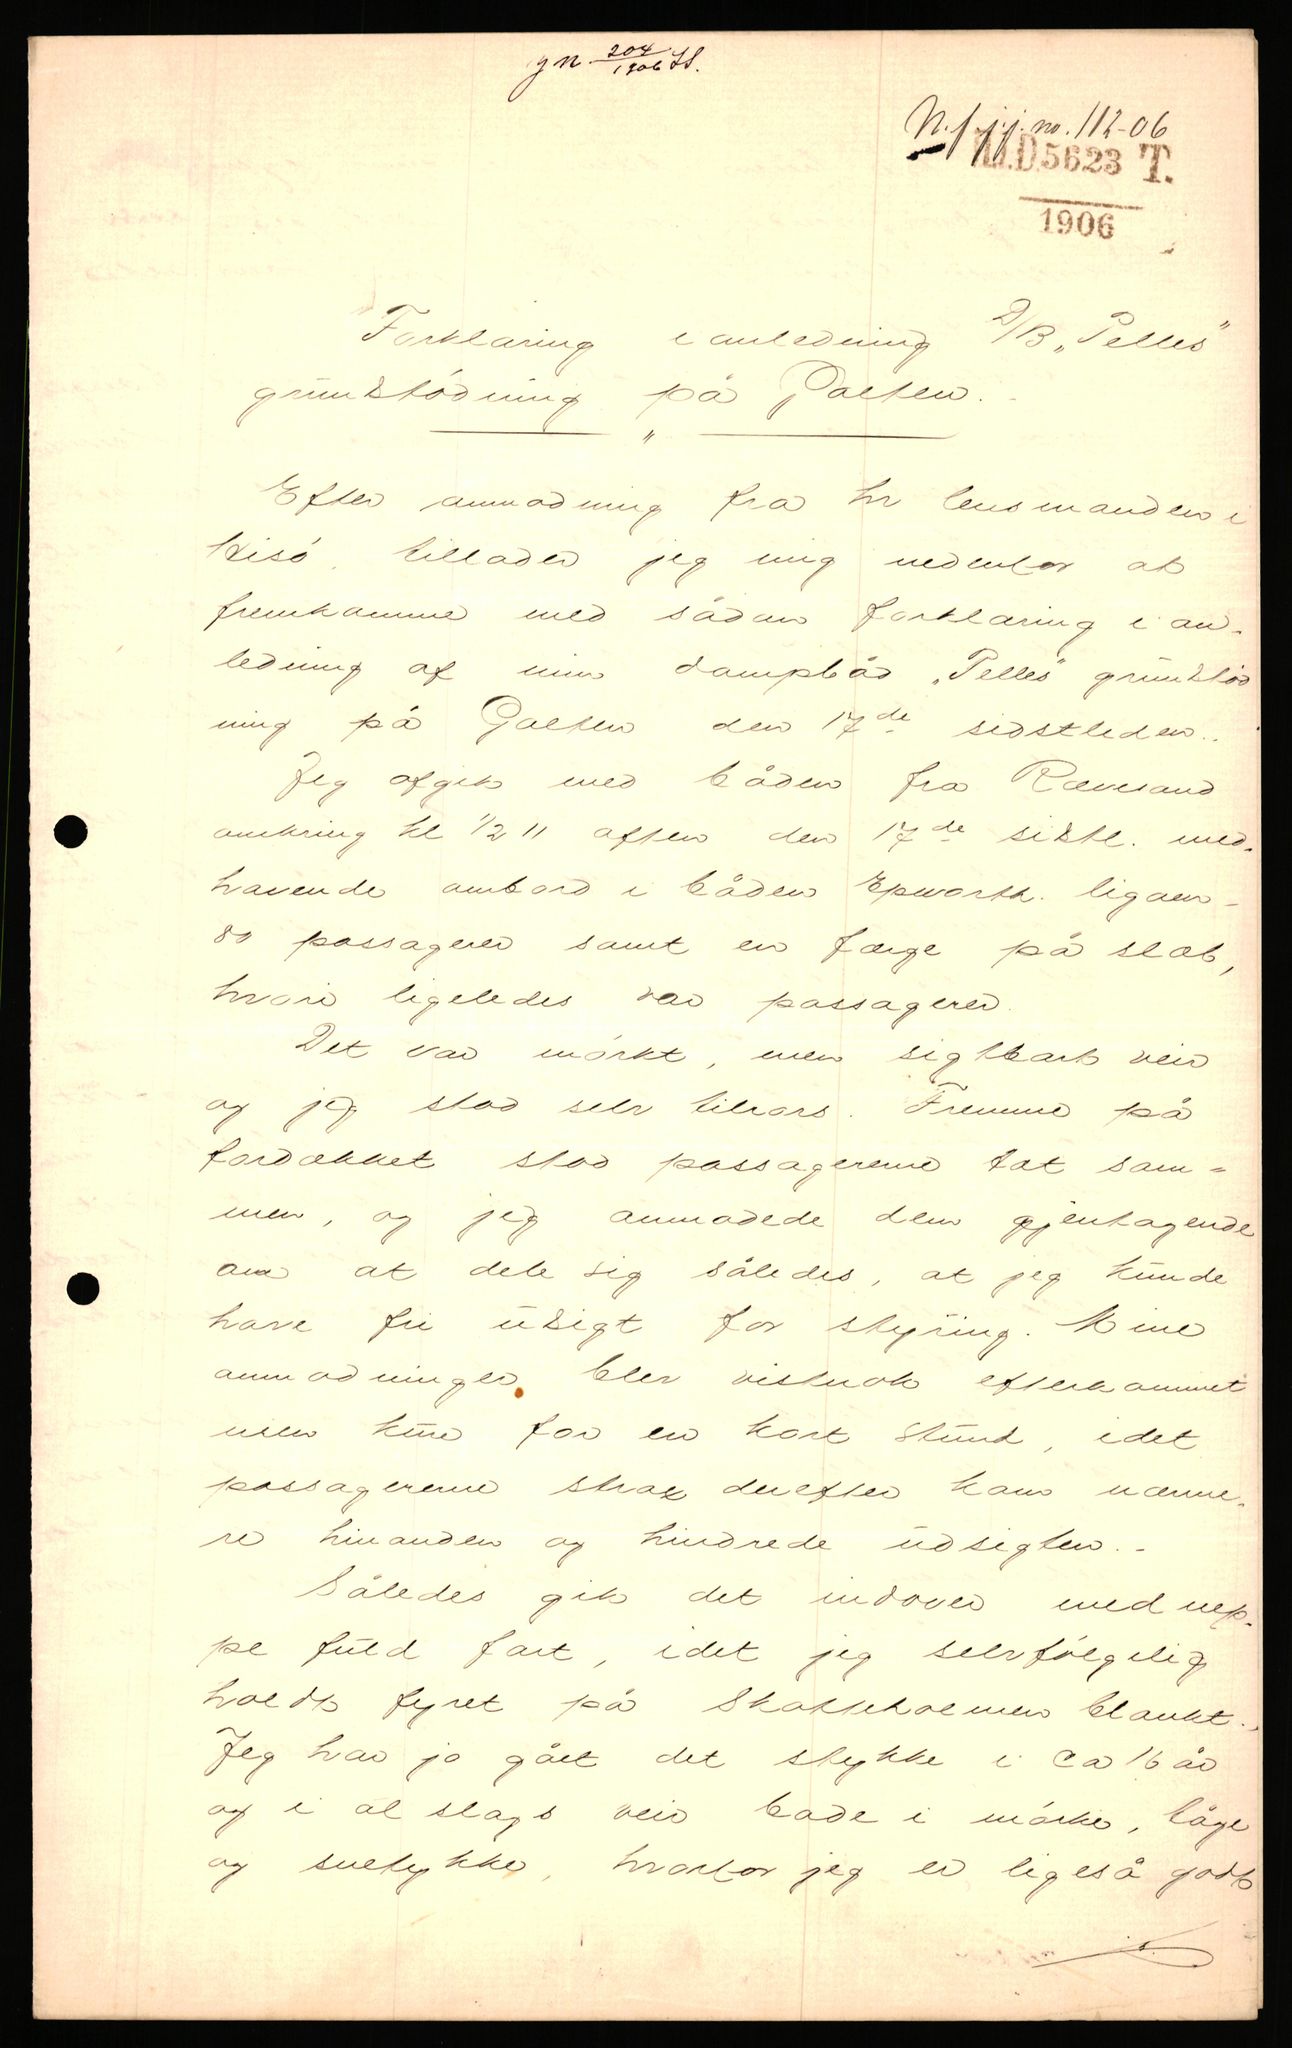 jn. 204/1906 LS.
N. f. j.j. no. 112-06
I.D. 5623 T.
1906
Forklaring i anledning D/B „Pelles"
grundstödning på Galten.
Efter anmodning fra hr lensmanden i
Hisö, tillader jeg mig nedenfor at
fremkomme med sådan forklaring i an-
ledning af min dampbåd „Pelles" grundstöd
ning på Galten den 17de sidstleden.
Jeg afgik med båden fra Rævesand
omkring kl ½ 11 aften den 17de sidstl. med-
havende ombord i båden Epworth. ligaen-
80 passagerer samt en færge på slæb,
hvori ligeledes var passagerer.
Det var mörkt, men sigtbart veir
og jeg stod selv tilrors. Fremme på
fordækket stod passagererne tæt sam-
men, og jeg anmodede dem gjentagende
om at dele sig således, at jeg kunde
have fri udsigt for styring. Mine
anmodninger blev vistnok efterkommet
men kun for en kort stund, idet
passagererne strax derefter kom nærme-
re hinanden og hindrede udsigten. -
Således gik det indover med nep-
pe fuld fart, idet jeg selvfölgelig
holdt fyret på Skotteholmen blankt.
Jeg har jo gået det stykke i ca 16 år
og i al slags veir både i mörke, tåge
og snetykke, hvorfor jeg er ligeså godt